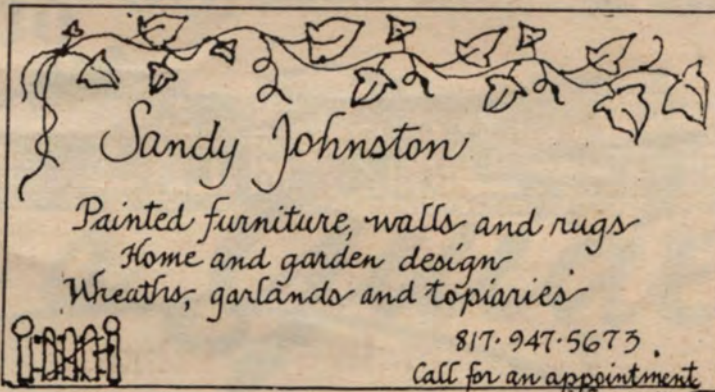 Sandy Johnston
Painted furniture, walls and rugs
Home and garden design
Wheaths, garlands and topiaries
817·947·5673
Call for an appointment